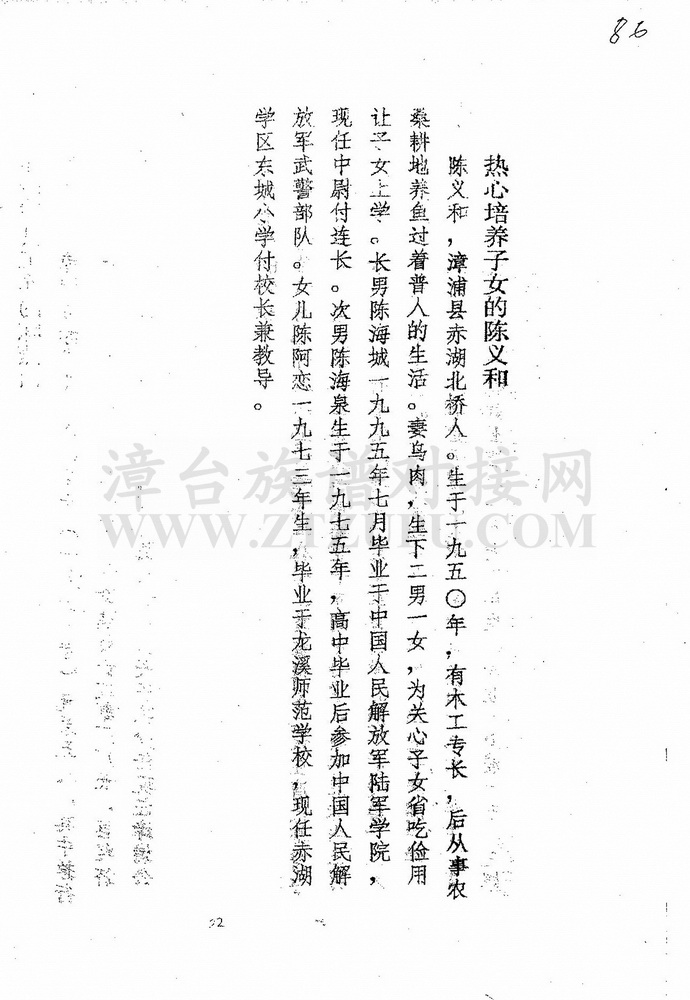 86
热心培养子女的陈义和
陈义和，漳浦县赤湖北桥人。生于一九五〇年，有木工专长，后从事农
桑耕地养鱼过着普人的生活。妻乌肉，生下二男一女，为关心子女省吃俭用
让子女上学。长男陈海城一九九五年七月毕业于中国人民解放军陆军学院，
现任中尉付连长。次男陈海泉生于一九七五年，高中毕业后参加中国人民解
放军武警部队。女儿陈阿恋一九七三年生，毕业于龙溪师范学校，现任赤湖
学区东城小学付校长兼教导。
漳台族谱对接网
WWW.ZTZUPU.COM